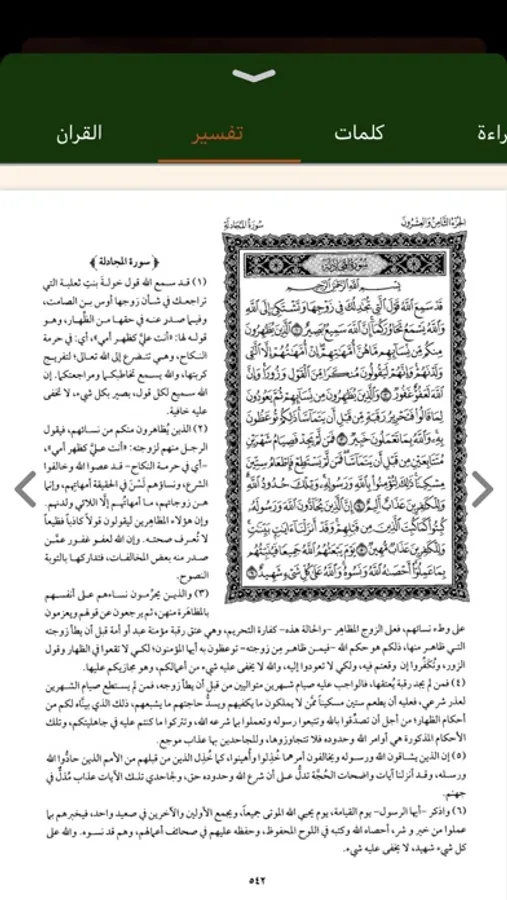 القران
تفسير
كلمات
راءة
الجزء الثامن والعشرون
سورة المجادلة
سورة المجادلة
بسم الله الرحمن الرحيم
قد سمع الله قول التي تجدلك في زوجها وتشتكي إلى الله
والله يسمع تحاوركما إن الله سميع بصير ١ الذين يظهرون
منكم من نسايهم ما هن أمهتهم إن أمهتهم إلا الي
ولدنهم وإنهم ليقولون منكرا من القول وزورا وإن
الله لعفو غفور ٢ والذين يظهرون من نسايهم ثم يعودون
لما قالوا فتحرير رقبة من قبل أن يتماسا ذلكم توعظون
به والله بما تعملون خبير ٣ فمن لم يجد فصيام شهرين
متتابعين من قبل أن يتماسا فمن لم يستطع فإطعام ستين
مسكينا ذلك لتؤمنوا بالله ورسوله وتلك حدود الله
وللكفرين عذاب أليم ٤ إن الذين يحادون الله ورسوله
كبتوا كما كبت الذين من قبلهم وقد أنزلنا ءايت بينت
وللكفرين عذاب مهين ٥ يوم يبعثهم الله جميعا فينبئهم
بما عملوا أحصه الله ونسوه والله على كل شيء شهيد ٦
﴿سورة المجادلة﴾
(١) قد سمع الله قول خولة بنت ثعلبة التي
تراجعك في شأن زوجها أوس بن الصامت،
وفيما صدر عنه في حقها من الظِّهار، وهو
قوله لها: «أنت عليَّ كظهر أمي»، أي: في حرمة
النكاح، وهي تتضرع إلى الله تعالى؛ لتفريج
كربتها، والله يسمع تخاطبكما ومراجعتكما. إن
الله سميع لكل قول، بصير بكل شيء، لا تخفى
عليه خافية.
(٢) الذين يُظاهرون منكم من نسائهم، فيقول
الرجل منهم لزوجته: «أنت عليَّ كظهر أمي»،
-أي في حرمة النكاح- قد عصوا الله وخالفوا
الشرع، ونساؤهم لَسْنَ في الحقيقة أمهاتهم، وإنما
هن زوجاتهم، ما أمهاتُهم إلَّا اللائي ولدنهم.
وإن هؤلاء المظاهِرين ليقولون قولاً كاذباً فظيعاً
لا تُعرف صحته. وإن الله لعفو غفور عمَّن
صدر منه بعض المخالفات، فتداركها بالتوبة
النصوح.
(٣) والذين يحرِّمون نساءهم على أنفسهم
بالمظاهَرة منهن، ثم يرجعون عن قولهم ويعزمون
على وطء نسائهم، فعلى الزوج المظاهِر -والحالة هذه- كفارة التحريم، وهي عتق رقبة مؤمنة عبد أو أمة قبل أن يطأ زوجته
التي ظاهر منها، ذلكم هو حكم الله -فيمن ظاهر مِن زوجته- توعظون به أيها المؤمنون؛ لكي لا تقعوا في الظهار وقول
الزور، وتُكَفِّروا إن وقعتم فيه، ولكي لا تعودوا إليه، والله لا يخفى عليه شيء من أعمالكم، وهو مجازيكم عليها.
(٤) فمن لم يجد رقبة يُعتقها، فالواجب عليه صيام شهرين متواليين من قبل أن يطأ زوجه، فمن لم يستطع صيام الشهرين
لعذر شرعي، فعليه أن يطعم ستين مسكيناً ممَّن لا يملكون ما يكفيهم ويسدُّ حاجتهم ما يشبعهم، ذلك الذي بينَّاه لكم من
أحكام الظهار؛ من أجل أن تصدِّقوا بالله وتتبعوا رسوله وتعملوا بما شرعه الله، وتتركوا ما كنتم عليه في جاهليتكم، وتلك
الأحكام المذكورة هي أوامر الله وحدوده فلا تتجاوزوها، وللجاحدين بها عذاب موجع.
(٥) إن الذين يشاقون الله ورسوله ويخالفون أمرهما خُذِلوا وأُهينوا، كما خُذِل الذين من قبلهم من الأمم الذين حادُّوا الله
ورسله، وقد أنزلنا آيات واضحات الحُجَّة تدلُّ على أن شرع الله وحدوده حق، ولجاحدي تلك الآيات عذاب مُذلٌّ في
جهنم.
(٦) واذكر -أيها الرسول- يوم القيامة، يوم يحيي الله الموتى جميعاً، ويجمع الأولين والآخرين في صعيد واحد، فيخبرهم بما
عملوا من خير وشر، أحصاه الله وكتبه في اللوح المحفوظ، وحفظه عليهم في صحائف أعمالهم، وهم قد نسوه. والله على
كل شيء شهيد، لا يخفى عليه شيء.
٥٤٢